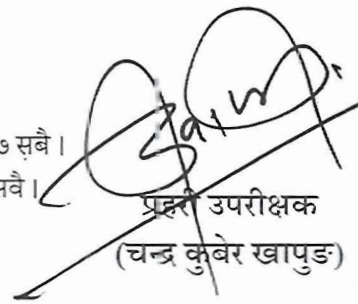 ७ सबै।
सबै।
प्रहरी उपरीक्षक
(चन्द्र कुबेर खापुङ)